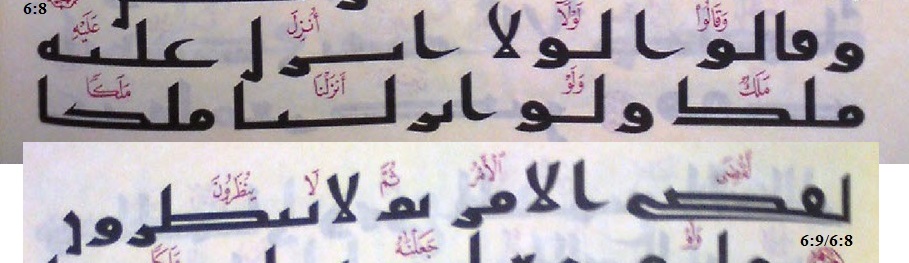 6:8
وَقَالُوا لَوْلَآ أُنزِلَ عَلَيْهِ
وقالوا لولا انزل عليه
مَلَكٌ وَلَوْ أَنزَلْنَا مَلَكًا
ملك ولو انزلنا ملكا
لَّقُضِيَ ٱلْأَمْرُ ثُمَّ لَا يُنظَرُونَ
لقضى الامر ثم لا ينظرون
وَلَوْ جَعَلْنَٰهُ مَلَكًا
6:9/6:8